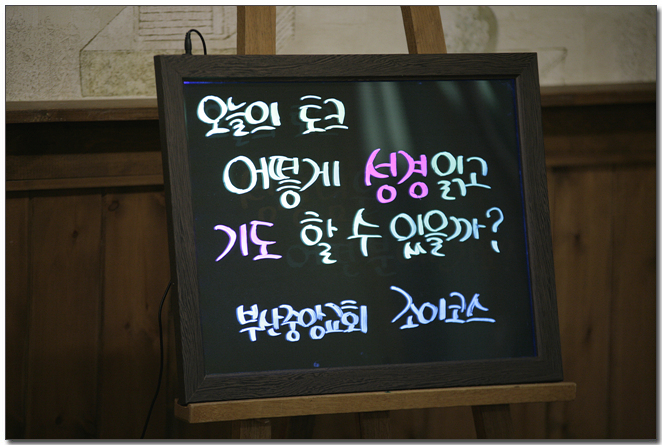 오늘의 토크
어떻게 성경 읽고
기도 할 수 있을까?
부산중앙교회 조이코스